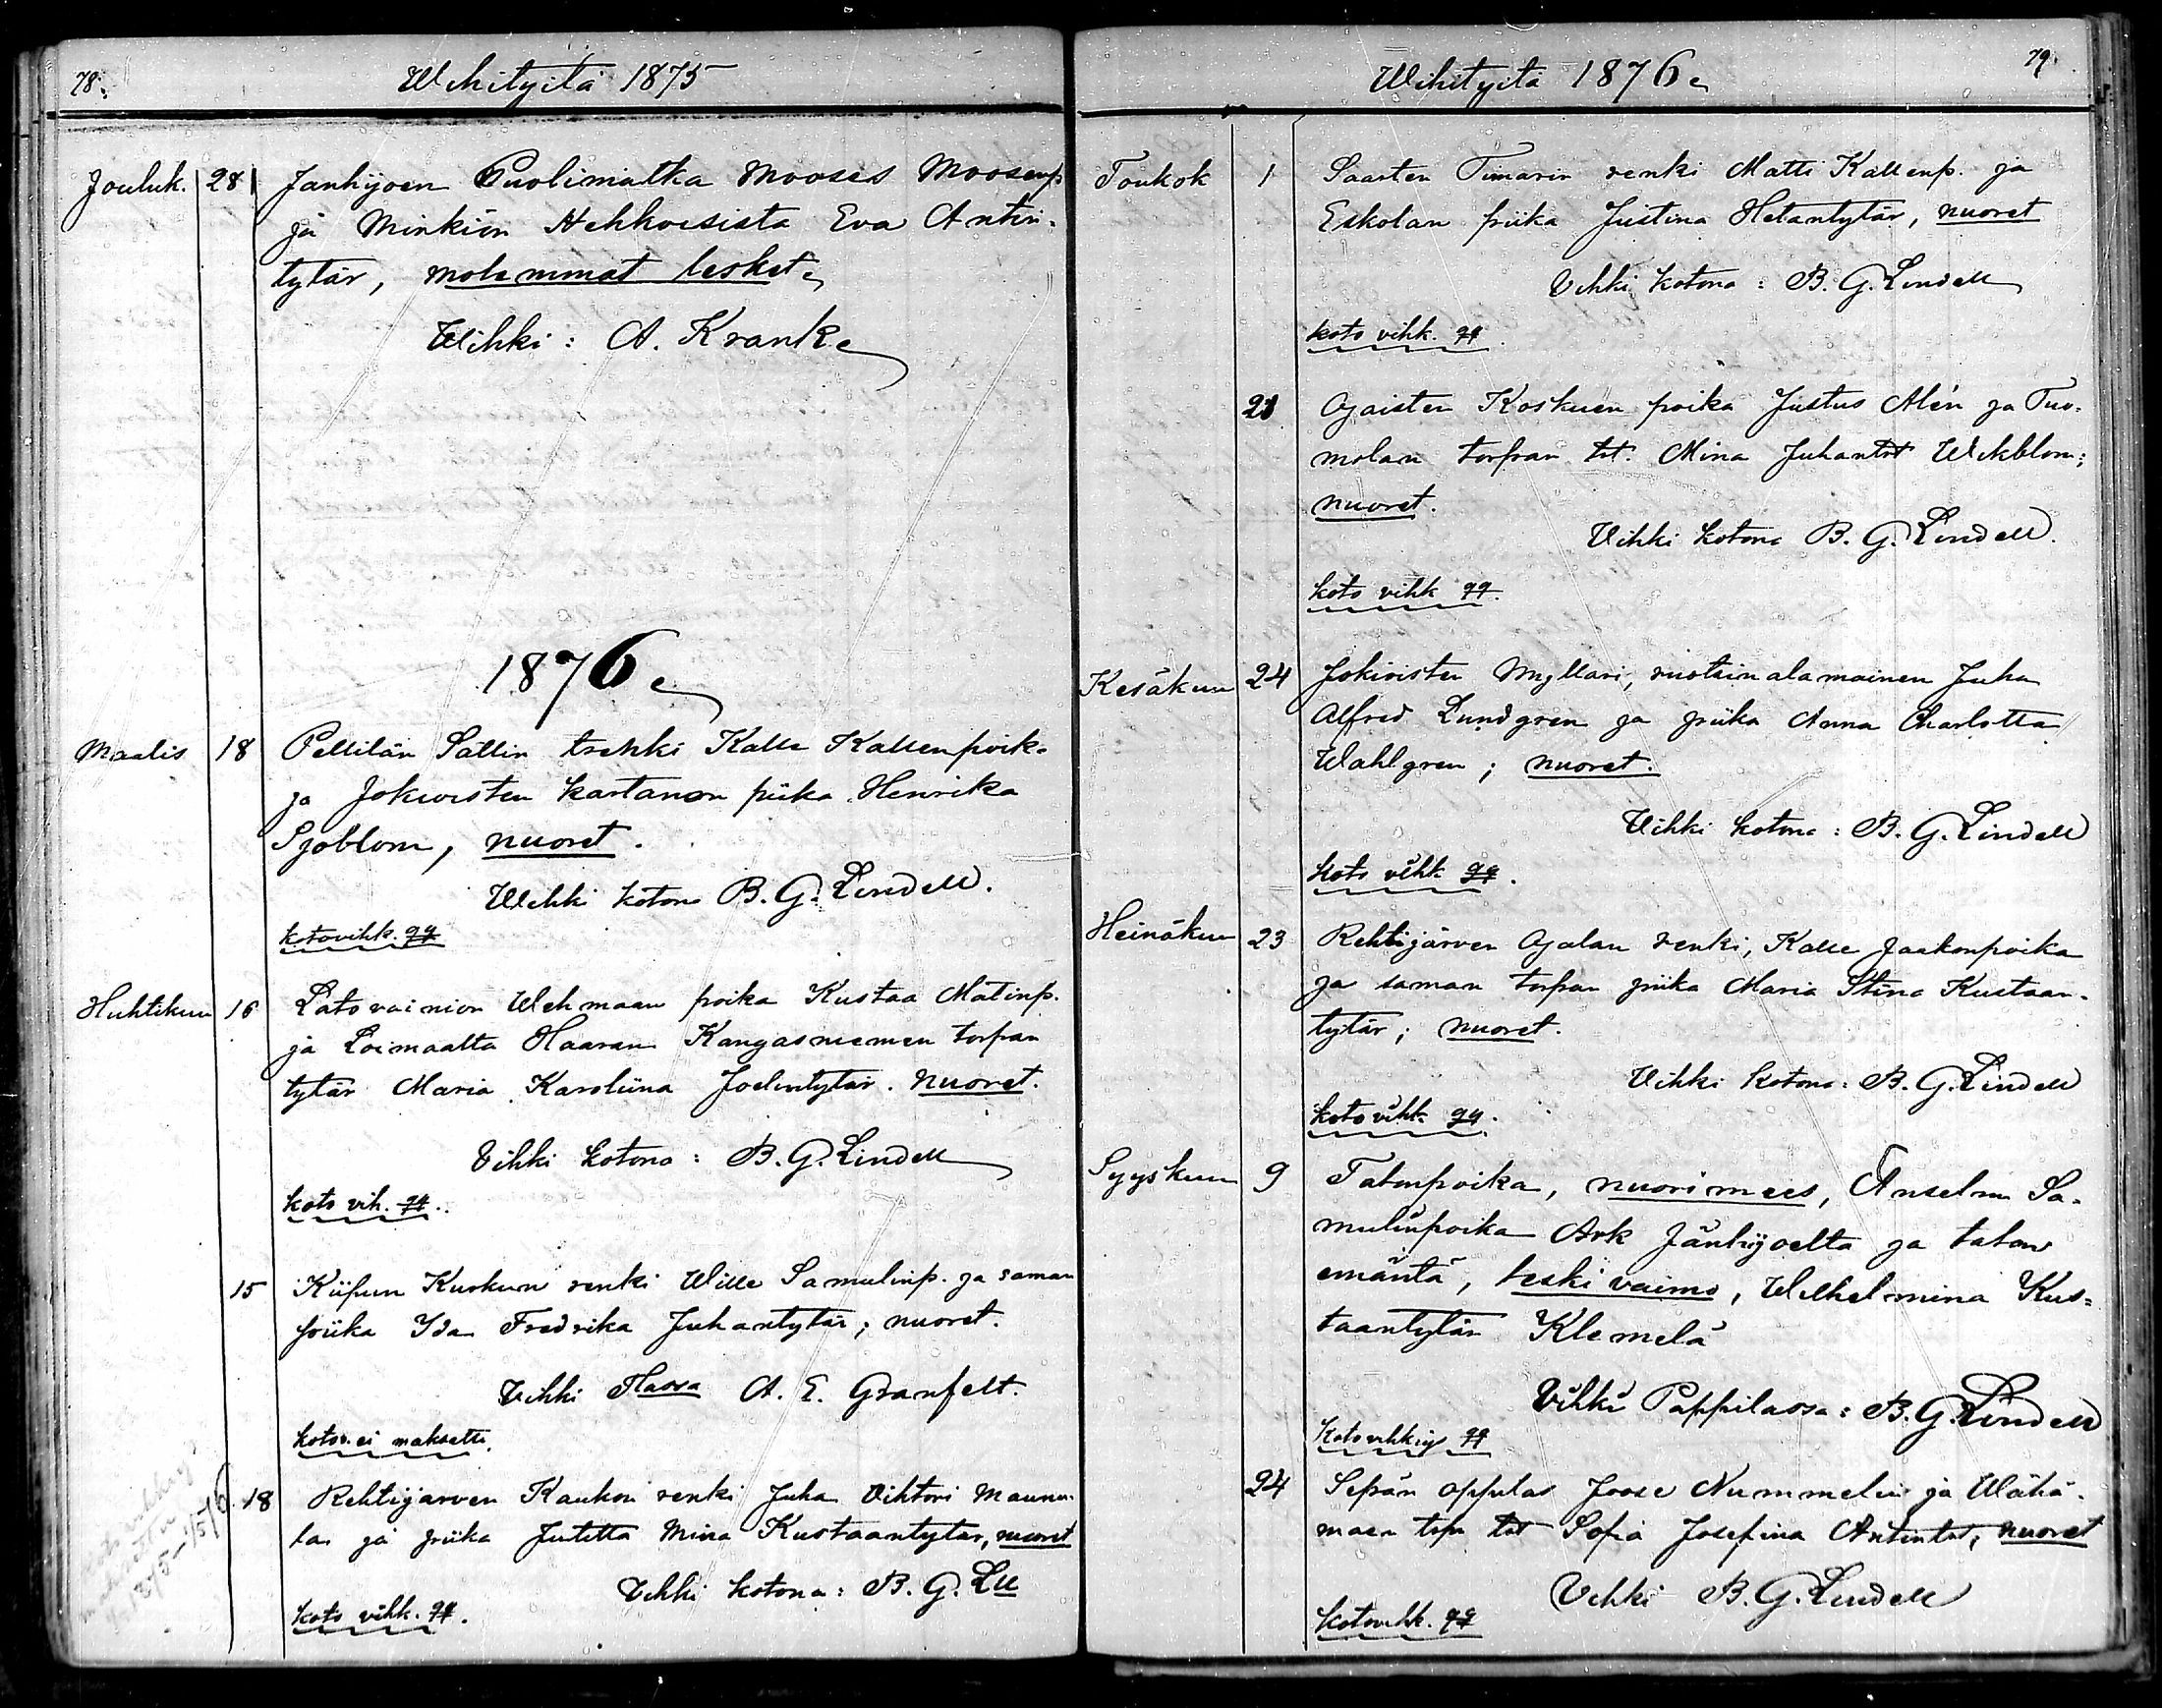 78.
Wihityitä 1875
Jouluk. 28 Jankijoen Puolimatka Mooses Moosenp.
ja Minkiön Hehkoisista Eva Antin-
tytär, molemmat lesket.
Wihki: A. Krank.
1876.
Maalis 18 Pellilän Sällin trenki Kalle Kallenpoik.
ja Jokioisten kartanon piika Henrika
Sjöblom, nuoret.
Wihki kotona B. G. Lindell.
kotovihk. qq
Huhtikuu 16 Latovainion Wehmaan poika Kustaa Matinp.
ja Loimaalta Haaran Kangasniemen torpan
tytär Maria Karoliina Joelintytär. nuoret.
Vihki kotona: B. G. Lindell
koto vih. qq.
15 Kiipun Kuskun renki Wille Samulinp. ja saman
piika Ida Fredrika Juhantytär; nuoret.
Vihki A. E. Granfelt.
kotov. ei maksettu.
18 Rehtijärven Kaukon renki Juha Vihtori Maunu-
la ja piika Jutetta Mina Kustaantytär, nuoret
Vihki kotona: B. G. Lll
koto vihk. qq.
1875–1/5 76
79.
Wihityitä 1876.
Toukok 1 Saarten Timarin renki Matti Kallenp. ja
Eskolan piika Justina Hetantytär, nuoret
Vihki kotona: B. G. Lindell
koto vihk. qq.
21 Ojaisten Koskuen poika Justus Alén ja Tuo-
molan torpan tt. Mina Juhantt Wikblom;
nuoret.
Vihki kotona B. G. Lindell.
koto vihk qq.
Kesäkuu 24 Jokioisten Myllari, ruotsin alamainen Juha
Alfred Lundgren ja piika Anna Charlotta
Wahlgren; nuoret.
Vihki kotona: B. G. Lindell
koto vihk qq.
Heinäkuu 23 Rehtijärven Ojalan renki, Kalle Jaakonpoika
ja saman torpan piika Maria Stina Kustaan-
tytär; nuoret.
Vihki kotona: B. G. Lindell
koto vihk qq.
Syyskuu 9 Talonpoika, nuorimees, Anselm Sa-
mulinpoika Ark Jänhijoelta ja talon
emäntä, leski vaimo, Wilhelmina Kus-
taantytär Klemelä
Vihki Pappilassa: B. G. Lindell
Kotovihkiys qq
24 Sepän oppilas Joose Nummelin ja Wähä-
maan trp. tt Sofia Josefina Antintt, nuoret
Vihki B. G. Lindell
kotovihk. qq